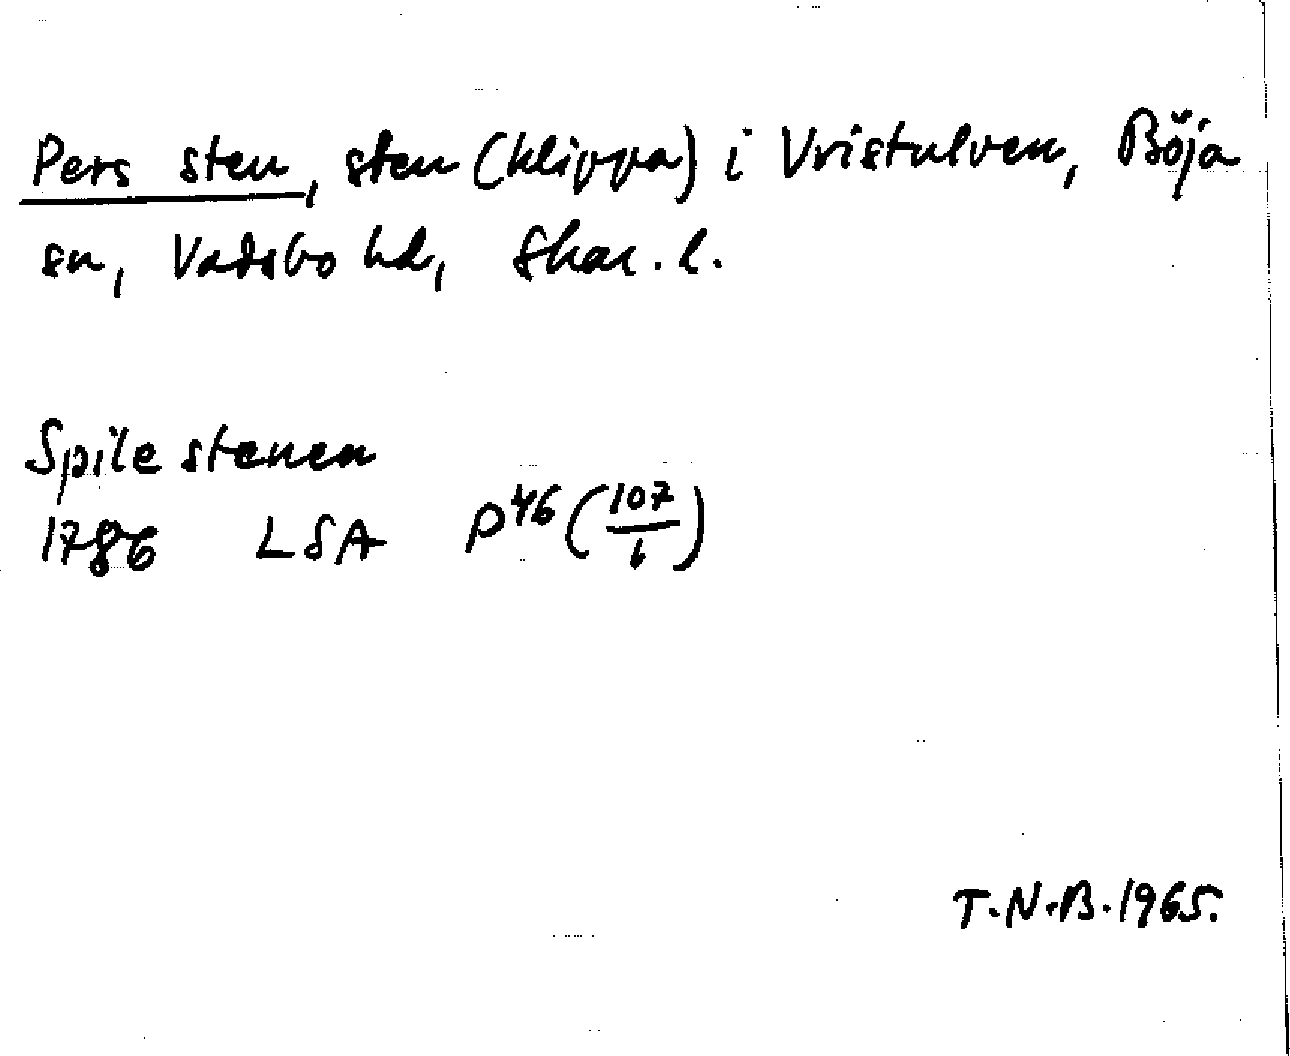 Pers sten, sten (klippa) i Vristulven, Böja
sn, Vadsbo hd, Skar. l.
Spile stenen
1786 LSA P46 (107/1)
T.N.B. 1965.